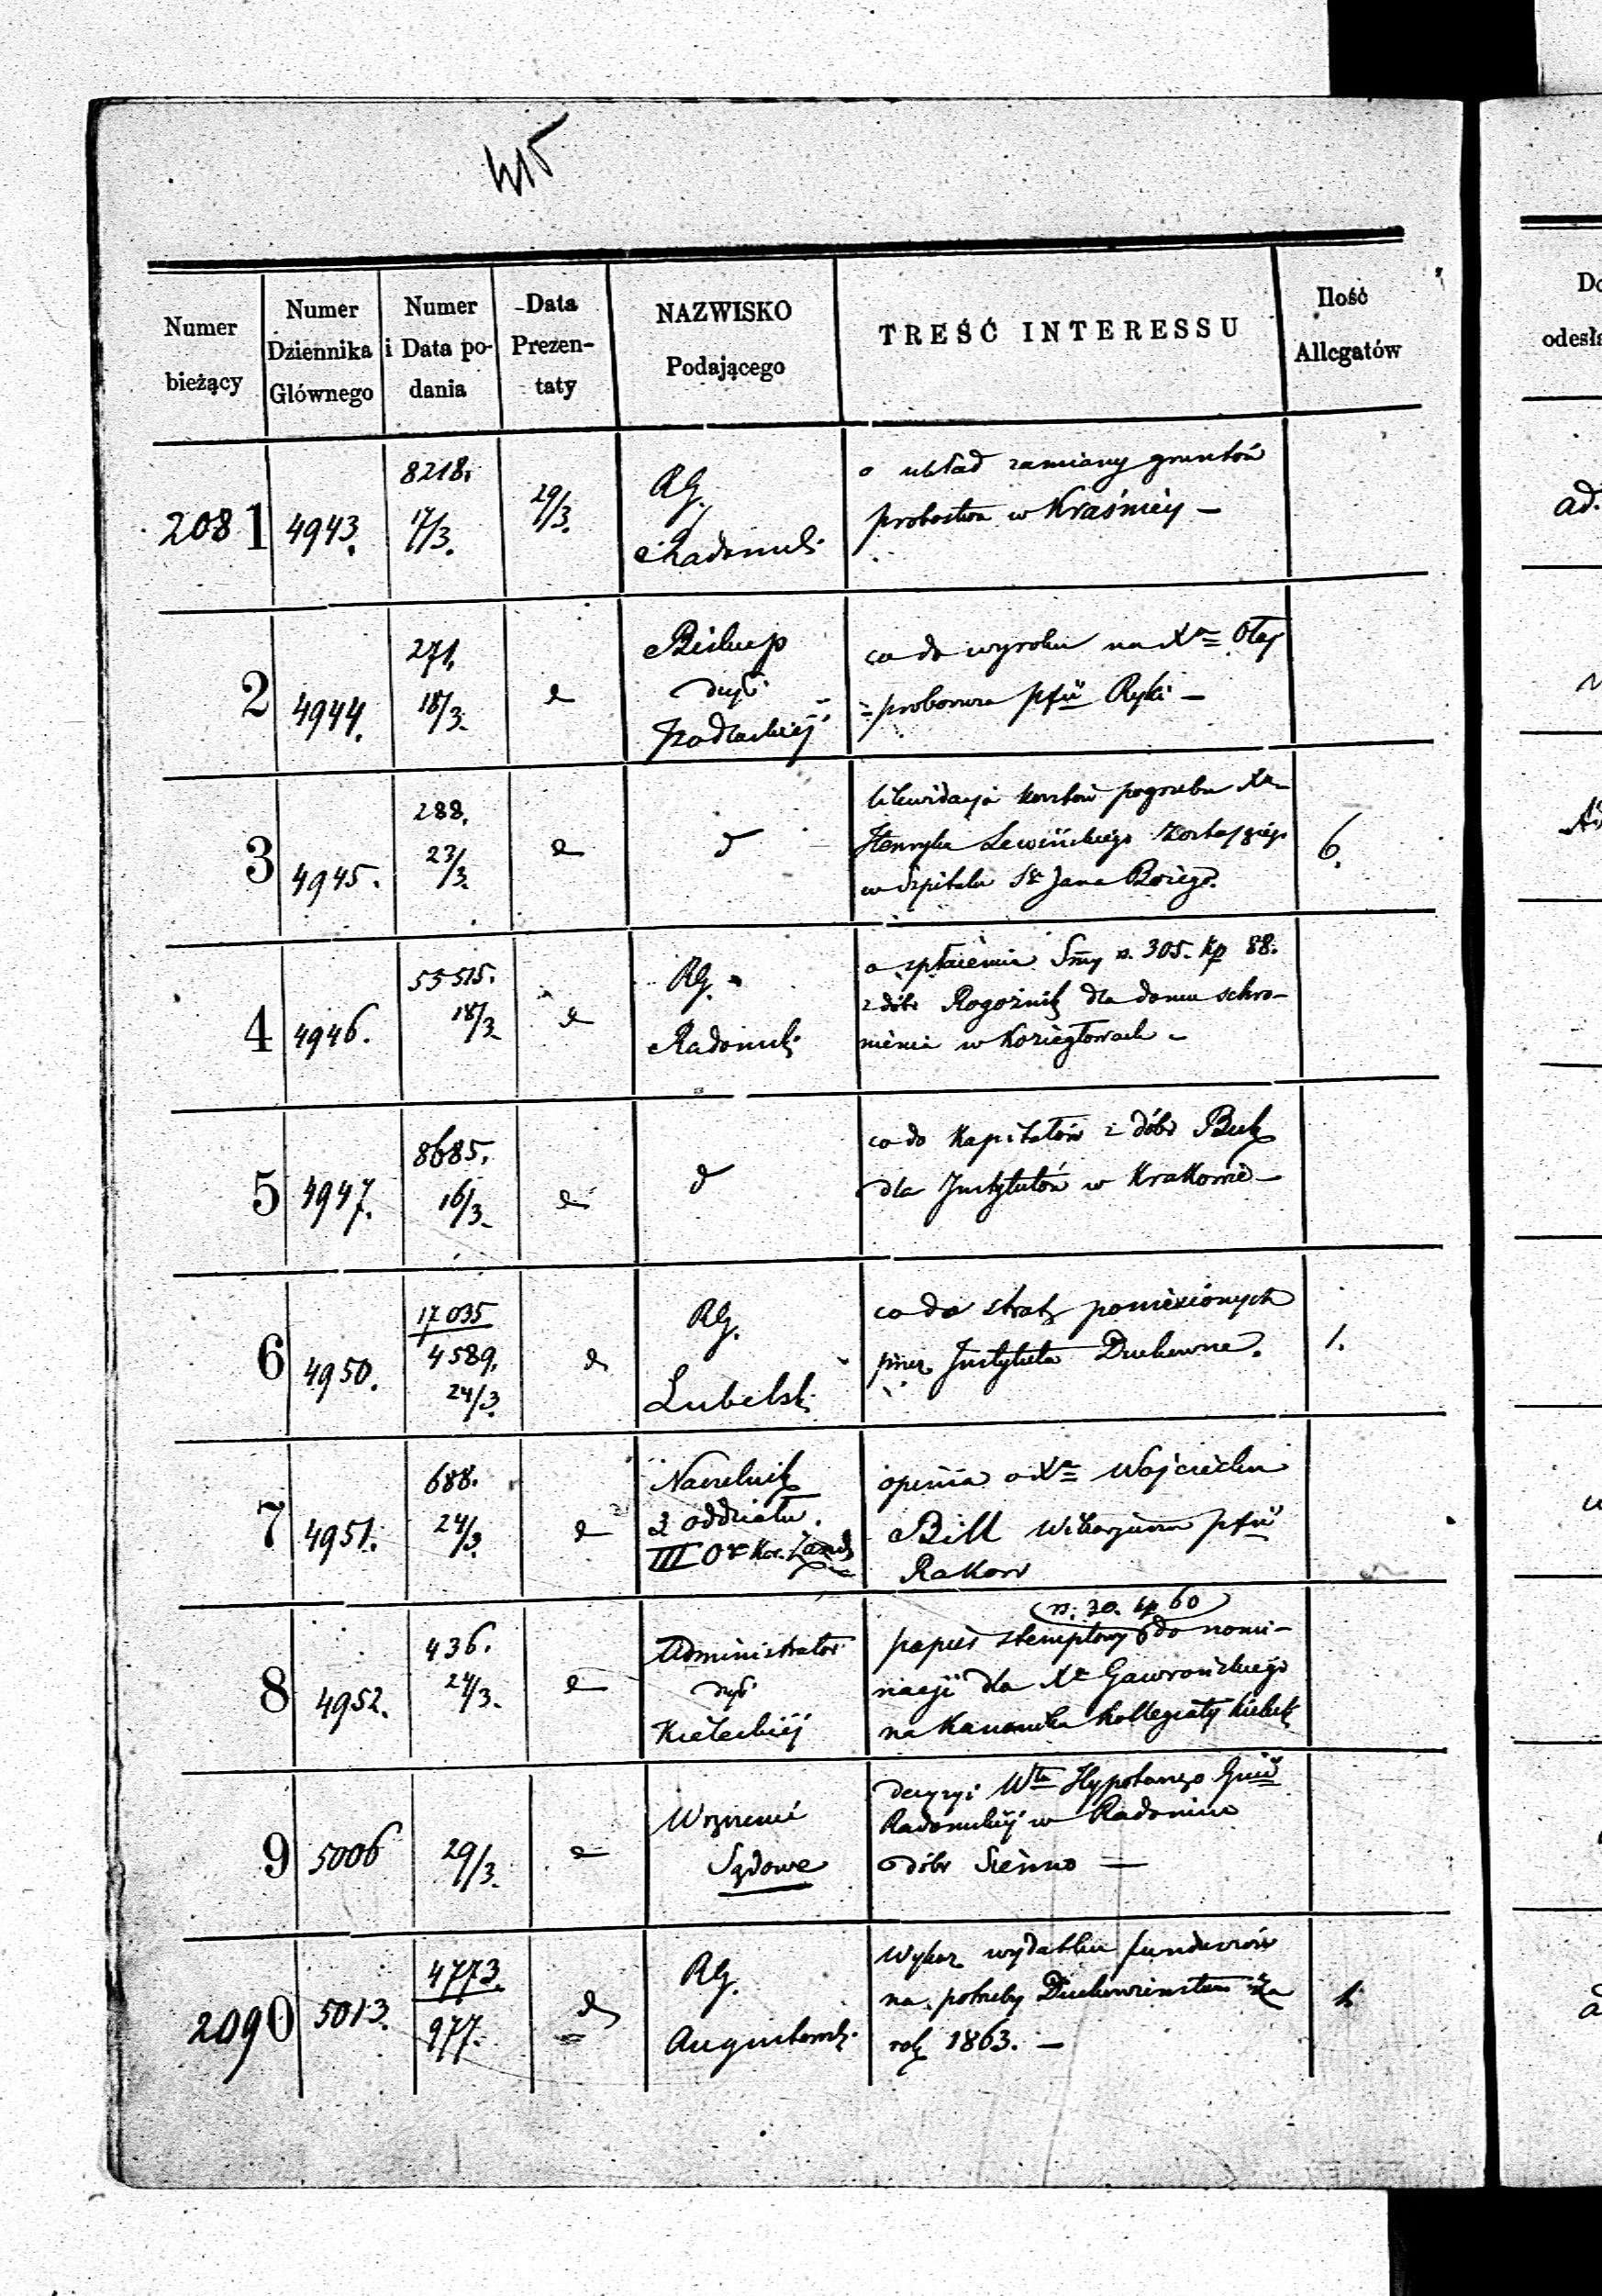 415
Numer bieżący
Numer Dziennika Głównego
Numer i Data podania
Data Prezentaty
NAZWISKO Podającego
TREŚĆ INTERESSU
Ilość Allegatów
Do
odesła
2081 4943. 8218. 17/3. 29/3. RG. Radomski
o układ zamiany gruntów
probostwa w Kraśnicy –
ad.
2 4944. 271. 18/3. d
Biskup
dyec.
Podlaskiej
co do wyroku na Xa
proboszcza pfii Ryki –
3 4945. 288. 23/3. d d
likwidacja kosztów pogrzebu Xa
Henryka Lewińskiego
w Szpitalu Sgo Jana Bożego.
6.
4 4946. 53515. 18/3 d
RG.
Radomski
o spłacenie Smy rs. 305. kp 88.
z dóbr Rogoźnik dla domu schro-
nienia w Koziegłowach –
5 4947. 8685. 16/3. d d
co do Kapitałów z dóbr Buk
dla Instytutów w Krakowie –
6 4950. 17035 4589. 24/3. d
RG.
Lubelski
co do strat poniesionych
przez Instytuta Duchowne.
1.
7 4951. 688. 24/3. d
Naczelnik
3 oddziału.
III Okr Kor. Żand
opinia o Xu Wojciechu
Bill Wikaryuszu pfii
Rakow
8 4952. 436. 24/3. d
Administrator
dyec.
Kieleckiej
rs. 30. kp 60
papier stemplowy do nomi-
nacji dla Xa Gawrońskiego
na Kanonika Kollegiaty Kieleck
9 5006 29/3. d
Wezwanie
Sądowe
decyzyi Włu Hypotecznego Gnii
Radomskiej w Radomiu
dóbr Sienno –
2090 5013. 4773. 977. d
RG.
Augustowski.
Wykaz wydatku funduszów
na potrzeby Duchowieństwa za
rok 1863. –
1.